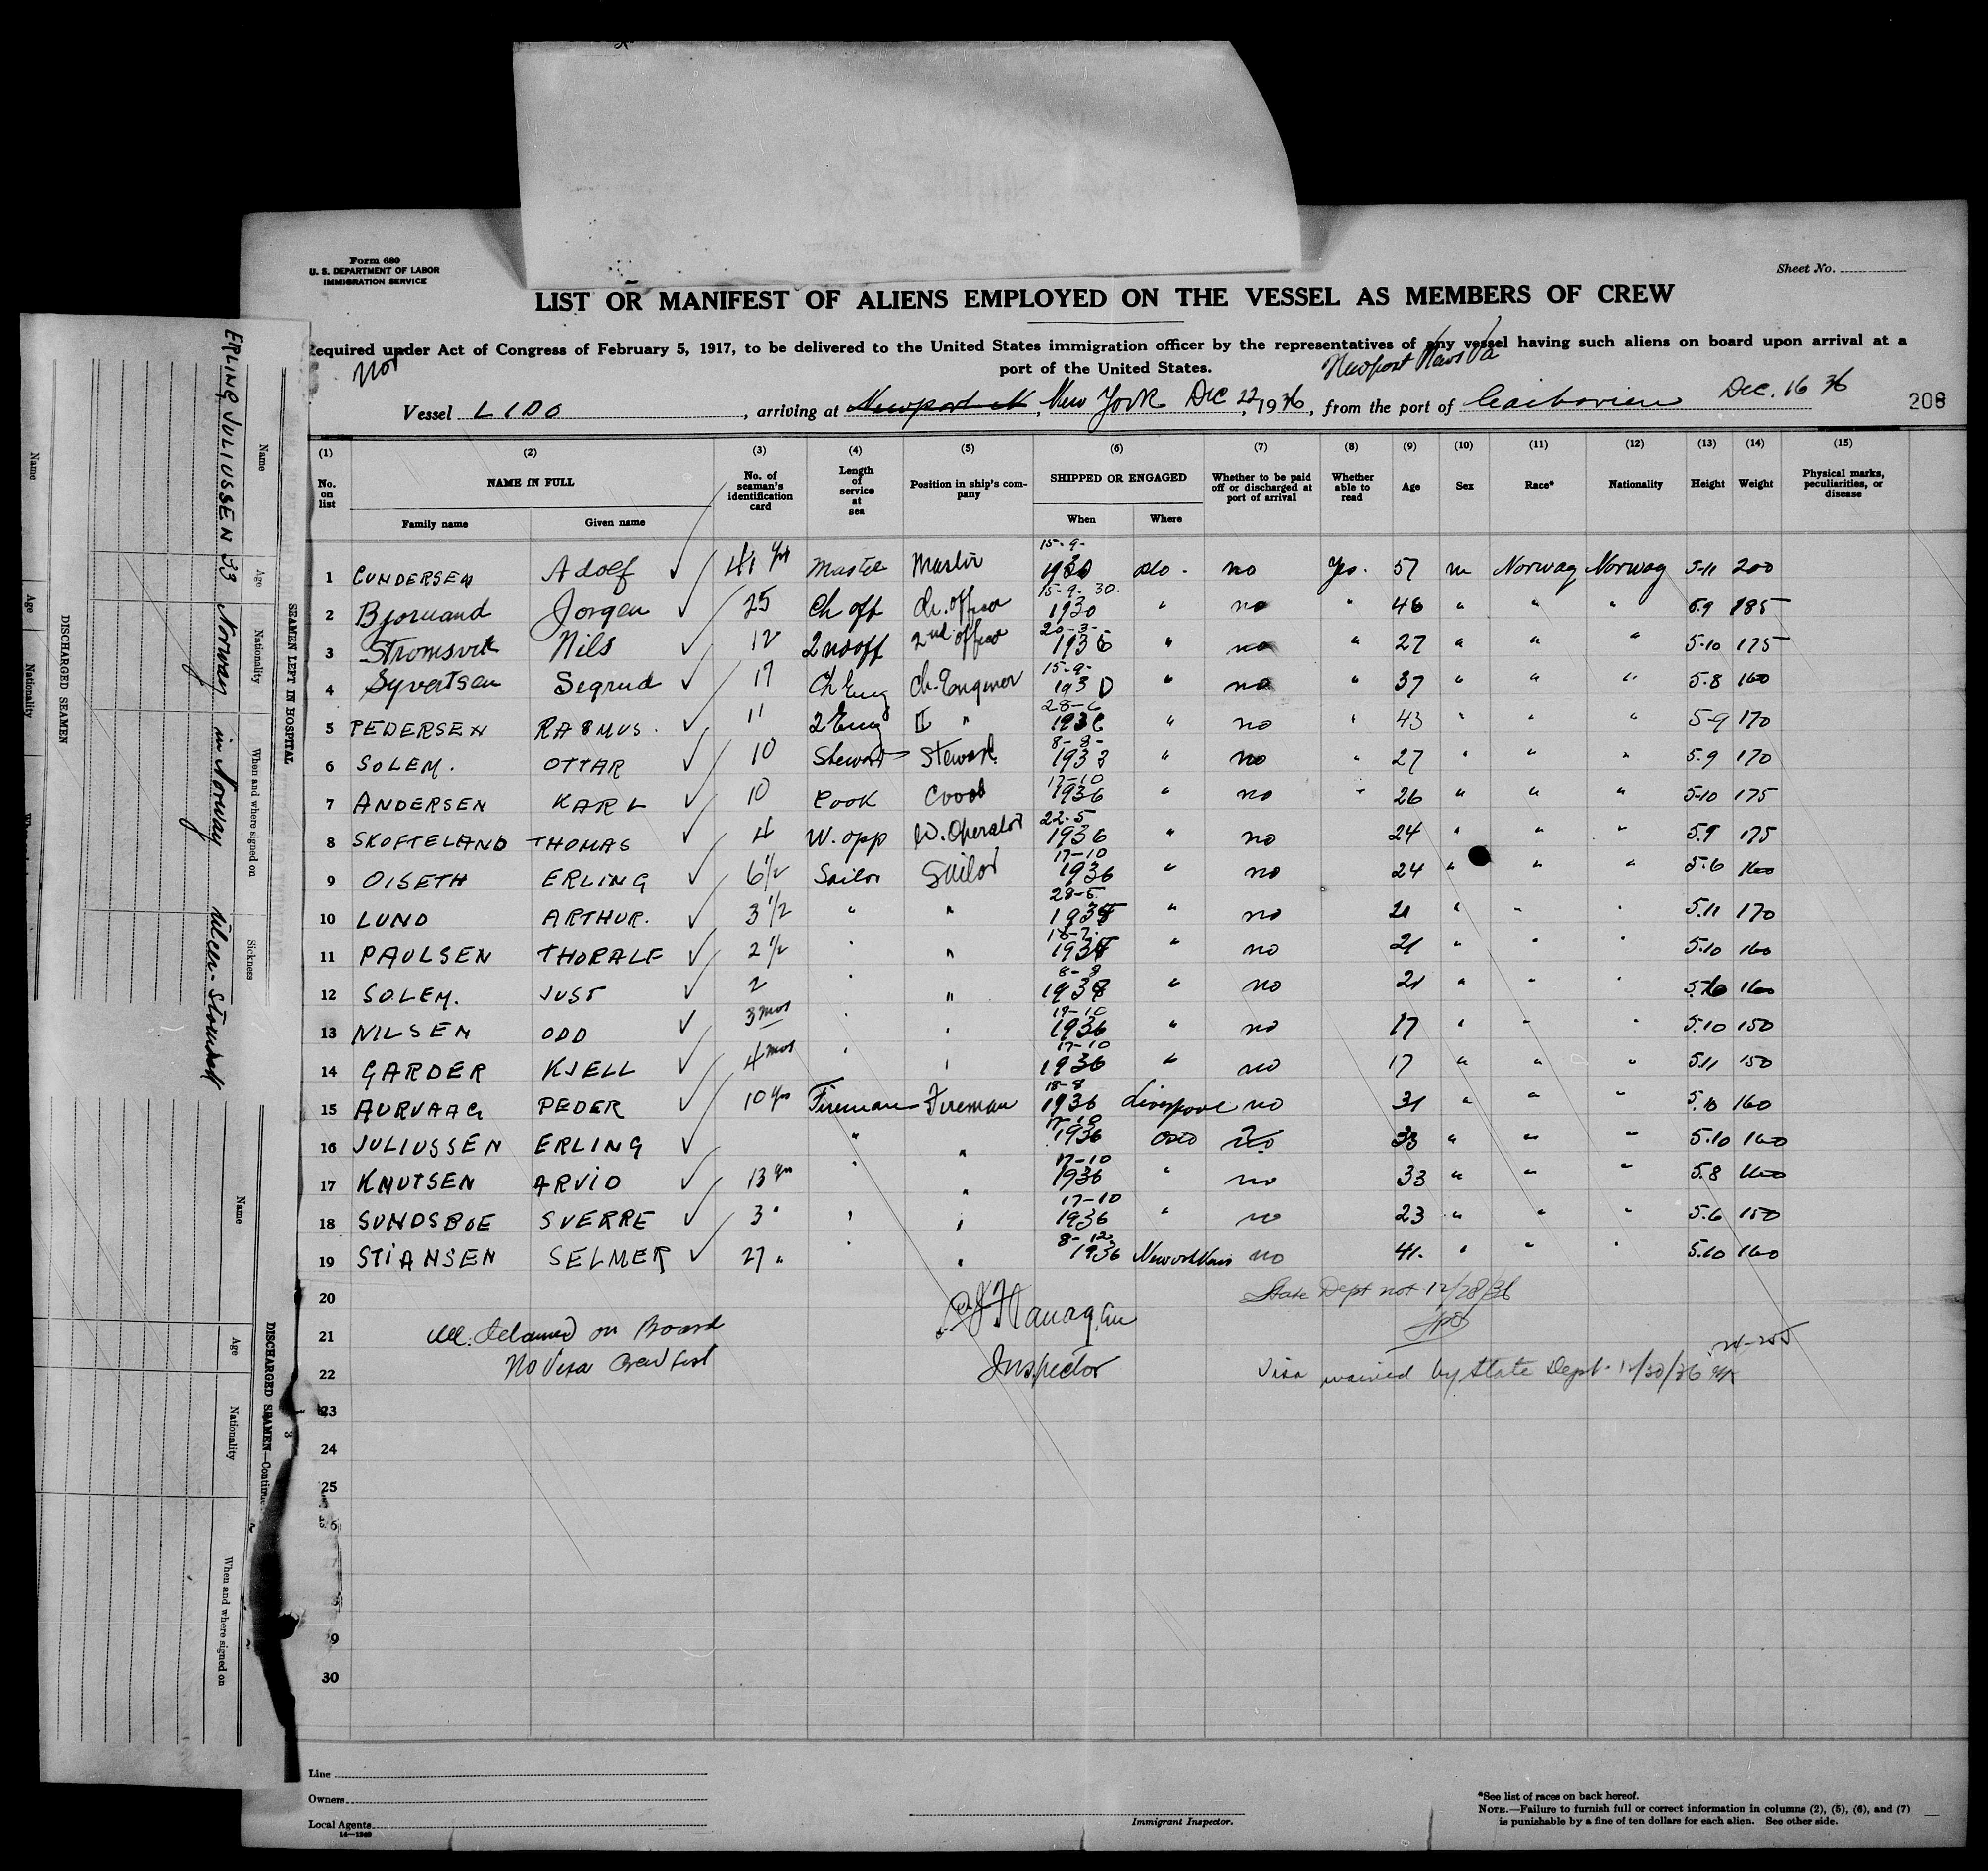 Form 680
U. S. DEPARTMENT OF LABOR
IMMIGRATION SERVICE
Sheet No.
LIST OR MANIFEST OF ALIENS EMPLOYED ON THE VESSEL AS MEMBERS OF CREW
Required under Act of Congress of February 5, 1917, to be delivered to the United States immigration officer by the representatives of any vessel having such aliens on board upon arrival at a
port of the United States.
Nor
Newport News Va
Vessel LIDO, arriving at New York Dec 22, 1936, from the port of Caibarien Dec. 16 36
208
(1) (2) (3) (4) (5) (6) (7) (8) (9) (10) (11) (12) (13) (14) (15)
No. on list NAME IN FULL No. of seaman's identification card Length of service at sea Position in ship's company SHIPPED OR ENGAGED Whether to be paid off or discharged at port of arrival Whether able to read Age Sex Race* Nationality Height Weight Physical marks, peculiarities, or disease
Family name Given name When Where
1 GUNDERSEN Adolf ✓ 41 yrs Master Master 15-9-1930 Oslo - no Yes. 57 m Norway Norway 5-11 200
2 Bjornand Jorgen ✓ 25 Ch off Ch. officer 15-9-30. 1930 " no " 46 " " " 5.9 185
3 Stromsvik Nils ✓ 12 2nd off 2nd officer 20-3-1936 " no " 27 " " " 5-10 175
4 Syvertsen Segrud ✓ 17 Ch Eng Ch. Engineer 15-9-1930 " no " 37 " " " 5.8 160
5 PEDERSEN RASMUS. ✓ 11 2 Eng II " 28-6 1936 " no " 43 " " " 5-9 170
6 SOLEM. OTTAR ✓ 10 Steward Steward 8-8-1933 " no " 27 " " " 5.9 170
7 ANDERSEN KARL ✓ 10 Cook Cook 17-10 1936 " no " 26 " " " 5-10 175
8 SKOFTELAND THOMAS ✓ 4 W. opp W. Operator 22-5 1936 " no 24 " " " 5.9 175
9 OISETH ERLING ✓ 6½ Sailor Sailor 17-10 1936 " no 24 " " " 5.6 160
10 LUND ARTHUR. ✓ 3 1/2 " " 28-5. " no 21 " " " 5.11 170
11 PAULSEN THORALF ✓ 2 ½ " " " no 21 " " " 5.10 160
12 SOLEM. JUST ✓ 2 " " 8-8 " no 21 " " " 160
13 NILSEN ODD ✓ 3 mos " " 1936 " no 17 " " " 5.10 150
14 GARDER KJELL ✓ 4 mos " " 17-10 1936 " no 17 " " " 5.11 150
15 AURVAAG PEDER ✓ 10 yrs Fireman Fireman 18-8 1936 Liverpool no 31 " " " 5.10 160
16 JULIUSSEN ERLING ✓ " " 17-10 1936 Oslo no 33 " " " 5.10 160
17 KNUTSEN ARVID ✓ 13 yrs " " 17-10 1936 " no 33 " " " 5.8 160
18 SUNDSBOE SVERRE ✓ 3 " " " 17-10 1936 " no 23 " " " 5.6 150
19 STIANSEN SELMER ✓ 27 " " " 8-12 1936 no 41. " " " 5.10 160
20 State Dept not 12/28/36
21 All detained on Board Flanagan
22 No Visa Crew List Inspector Visa waived by State Dept. 12/30/36
23
24
25
30
Line
Owners
Local Agents
14—1240
Immigrant Inspector.
*See list of races on back hereof.
NOTE.—Failure to furnish full or correct information in columns (2), (5), (6), and (7)
is punishable by a fine of ten dollars for each alien. See other side.
SEAMEN LEFT IN HOSPITAL
Name Age Nationality When and where signed on Sickness
ERLING JULIUSSEN 33 Norway in Norway Ulcer-Stomach
DISCHARGED SEAMEN
Name Age Nationality
DISCHARGED SEAMEN—Continue
Name Age Nationality When and where signed on